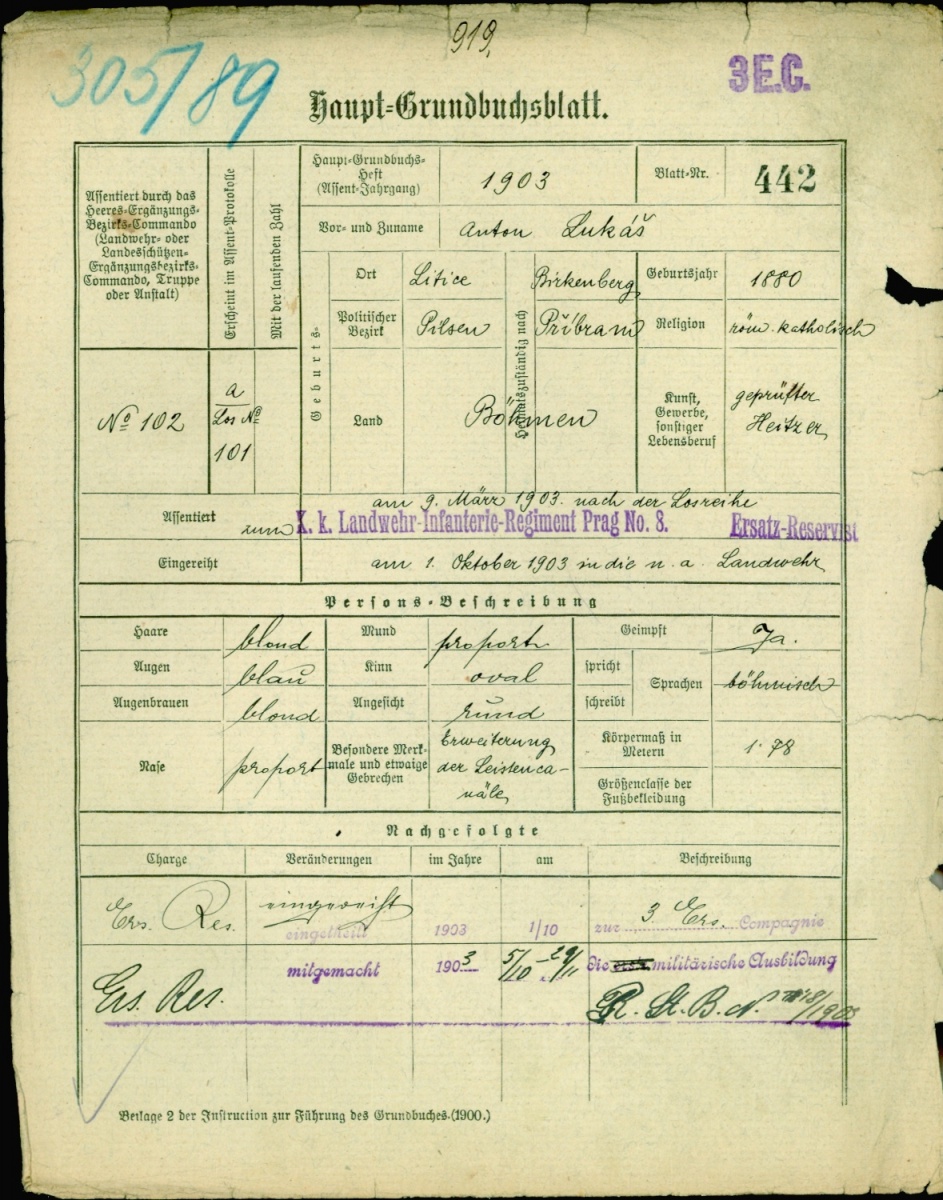 919.
305/89
3 E.C.
Haupt-Grundbuchsblatt.
Assentiert durch das
Heeres-Ergänzungs-
Bezirks-Commando
(Landwehr- oder
Landesschützen-
Ergänzungsbezirks-
Commando, Truppe
oder Anstalt)
Erscheint im Assent-Protokolle
Mit der laufenden Zahl
Haupt-Grundbuchs-
Heft
(Assent-Jahrgang)
1903
Blatt-Nr.
442
Vor- und Zuname
Anton Lukáš
Geburts-
Ort
Litice
Heimatszuständig nach
Birkenberg
Geburtsjahr
1880
Politischer
Bezirk
Pilsen
Přibram
Religion
röm. katholisch
No 102
a
Los No
101
Land
Böhmen
Kunst,
Gewerbe,
sonstiger
Lebensberuf
geprüfter
Heitzer
Assentiert
am 9. März 1903. nach der Losreihe
zum K. k. Landwehr-Infanterie-Regiment Prag No. 8. Ersatz-Reservist
Eingereiht
am 1. Oktober 1903 in die n. a. Landwehr
Persons-Beschreibung
Haare
blond
Mund
proport
Geimpft
Ja.
Augen
blau
Kinn
oval
spricht
schreibt
Sprachen
böhmisch
Augenbrauen
blond
Angesicht
rund
Nase
proport
Besondere Merk-
male und etwaige
Gebrechen
Erweiterung
der Leistenca-
näle
Körpermaß in
Metern
1·78
Größenclasse der
Fußbekleidung
Nachgefolgte
Charge
Veränderungen
im Jahre
am
Beschreibung
Ers. Res.
eingereiht
eingetheilt
1903
1/10
zur 3 Ers. Compagnie
Ers. Res.
mitgemacht
1903
5/10 - 29/11
die militärische Ausbildung
R. St. B. N.
Beilage 2 der Instruction zur Führung des Grundbuches. (1900.)